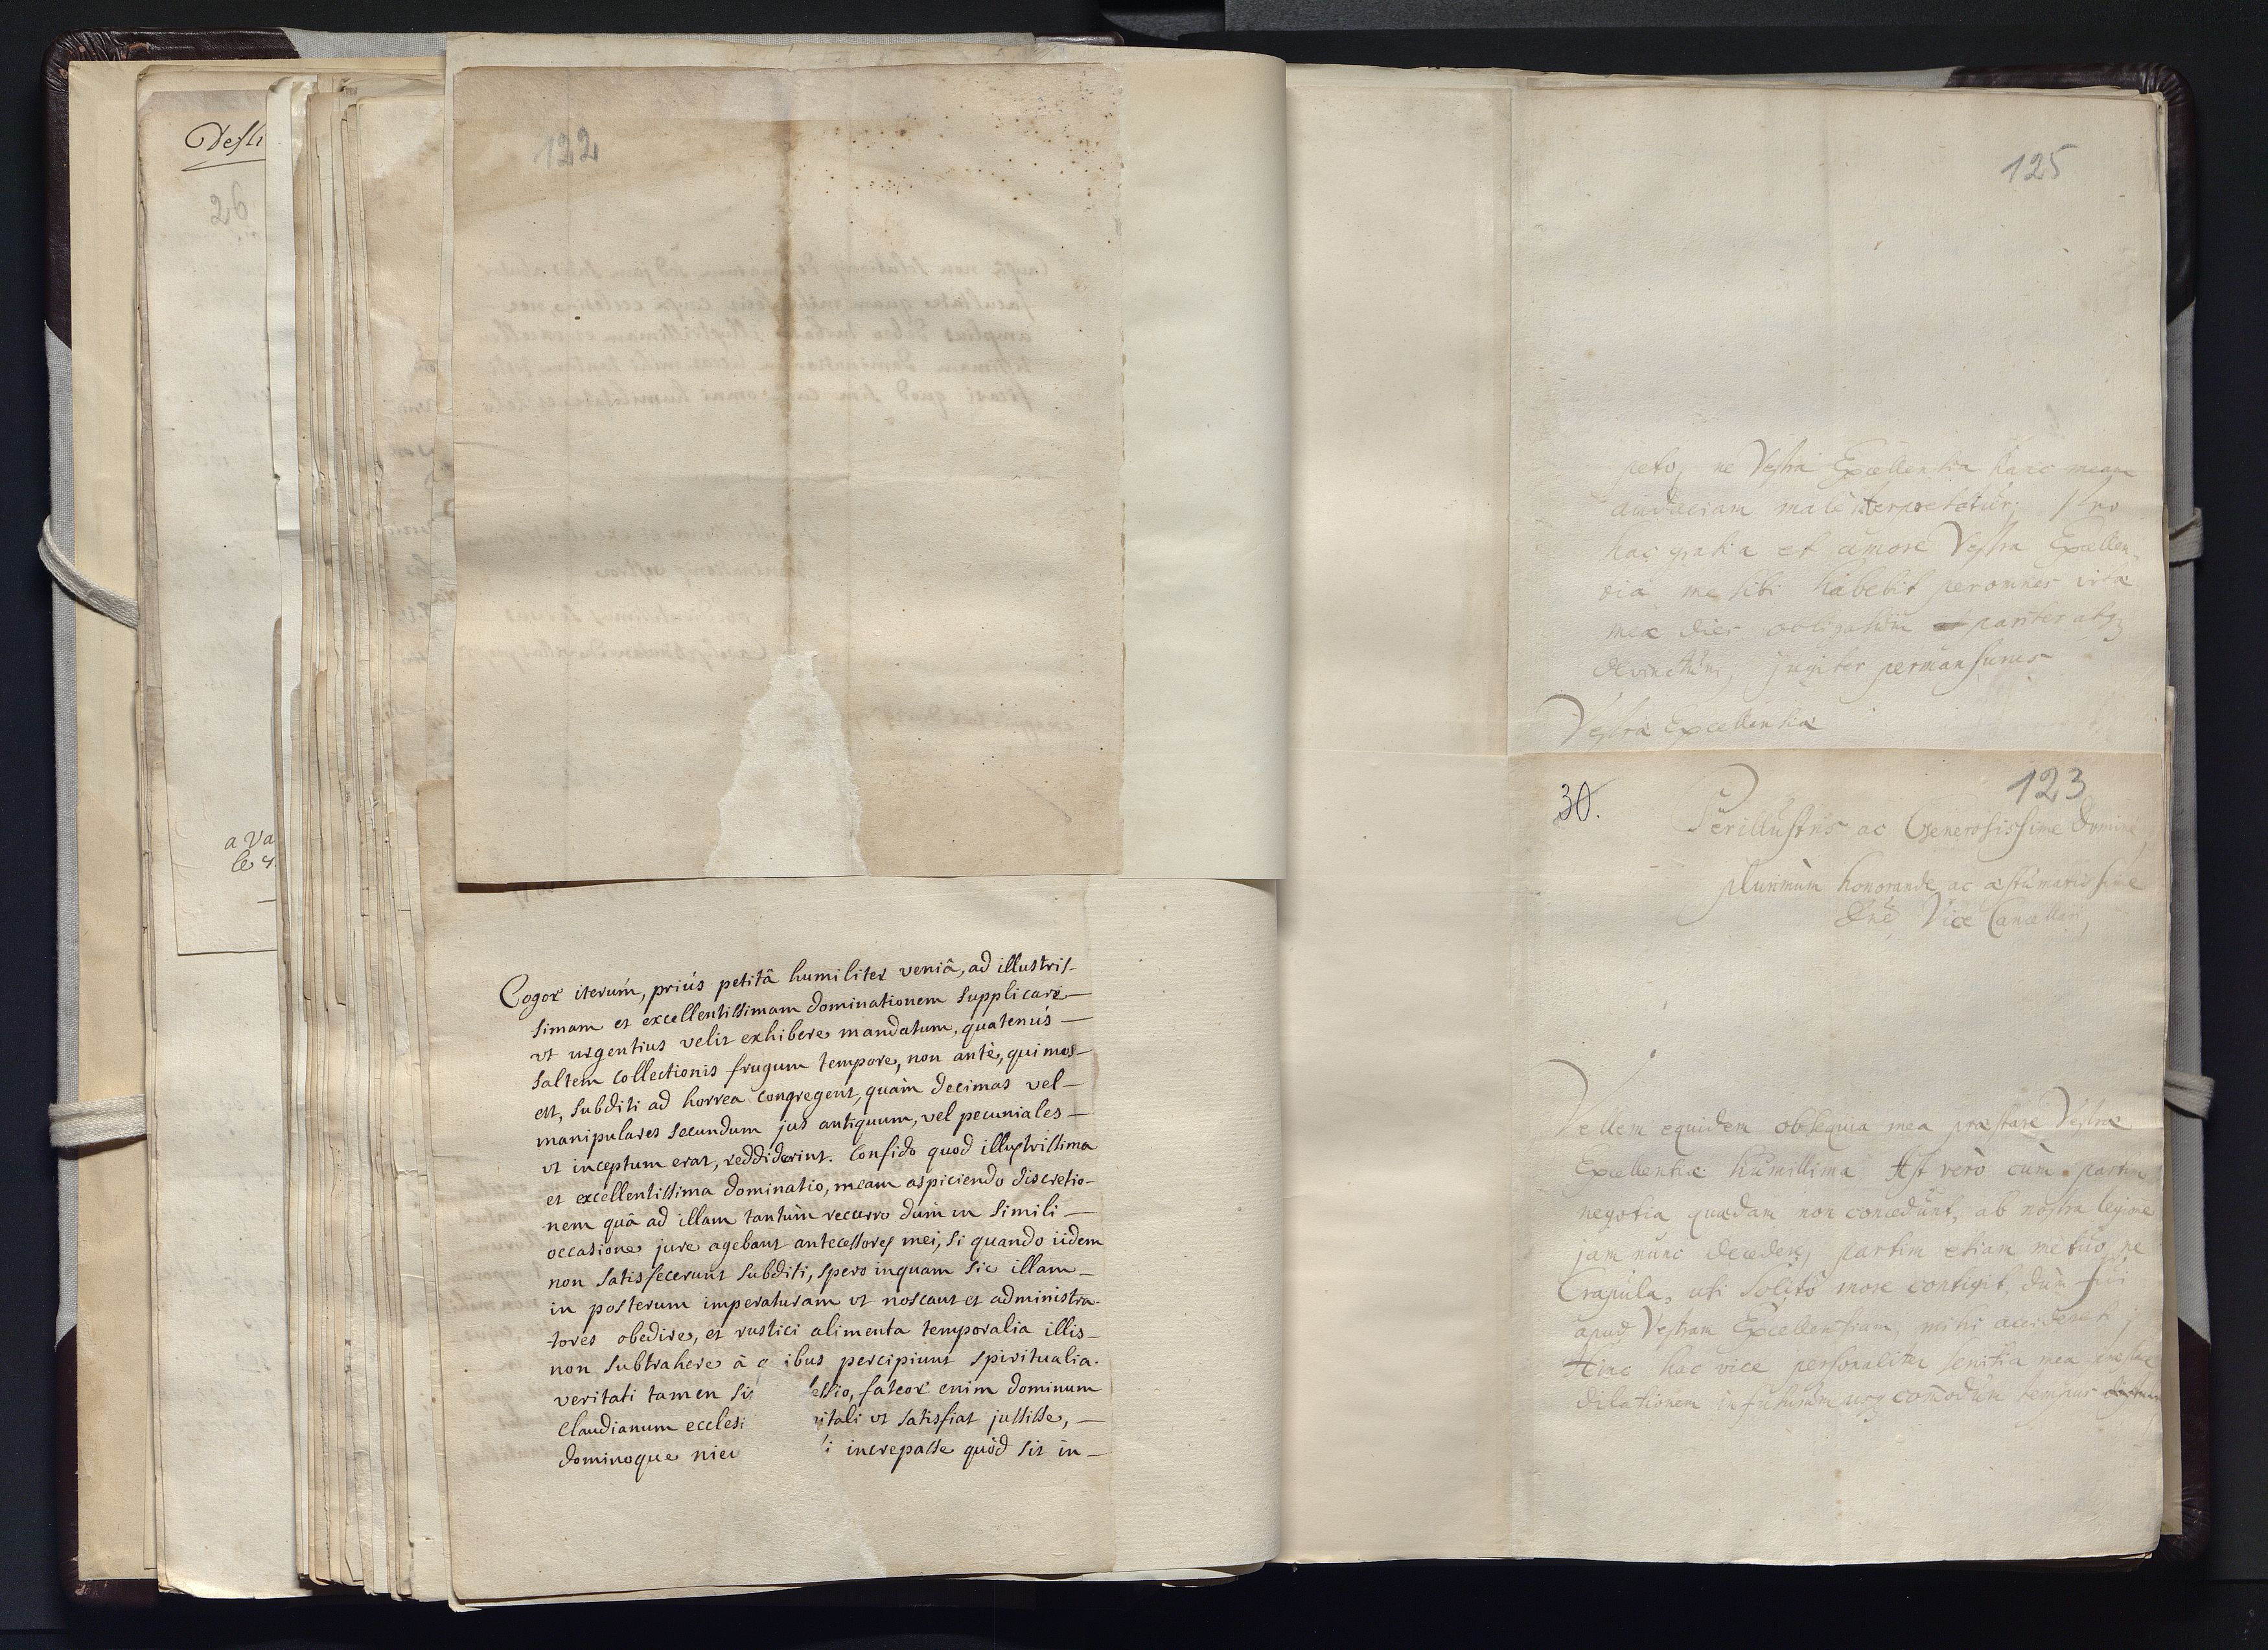 Desti
26
a Va
le
122
Cogor iterum, priús petitâ humiliter veniâ, ad illustris-
simam et excellentissimam dominationem supplicare
ut urgentius velit exhibere mandatum, quatenús
saltem collectionis frugum tempore, non antè, qui mos
est, subditi ad horrea congregent, quàm decimas vel
manipulares secundum jus antiquum, vel pecuniales
ut inceptum erat, reddiderint. Confido quod illustrissima
et excellentissima dominatio, meam aspiciendo discretio-
nem quâ ad illam tantùm recurro dum in simili
occasione jure agebant antecessores mei, si quando iidem
non satisfecerunt subditi, spero inquam sic illam
in posterum imperaturam ut noscant et administra-
tores obedire, et rustici alimenta temporalia illis
non subtrahere â q ibus percipiunt spiritualia.
veritati tamen si essio, fateor enim dominum
Claudianum ecclesi itali ut satisfiat jussisse,
dominoque nie i increpasse quòd sit in-
125
peto, ne Vestra Excellentia hanc meam
audaciam male interpretetur; Pro
hac gratia et amore Vestra Excellen-
tia me sibi habebit per omnes vitæ
meæ dies obligatum pariter atq3
devinctum, jugiter permansurus
Vestræ Excellentiæ
30.
123
Perillustris ac Generosissime Domine,
plurimùm honorande ac æstumatissime
Dne Vice Cancellari,
Vellem equidem obsequia mea præstare Vestræ
Excellentiæ humillima Ast verò cùm partim
negotia quædam non concedunt, ab nostra legione
jam nunc decedere, partim etiam metuo, ne
Crapula, uti solito more contigit, dum fui
apud Vestram Excellentiam, mihi accideret;
Hinc hac vice personaliter servitia mea
dilationem in futurum usq3 com̄odum tempus